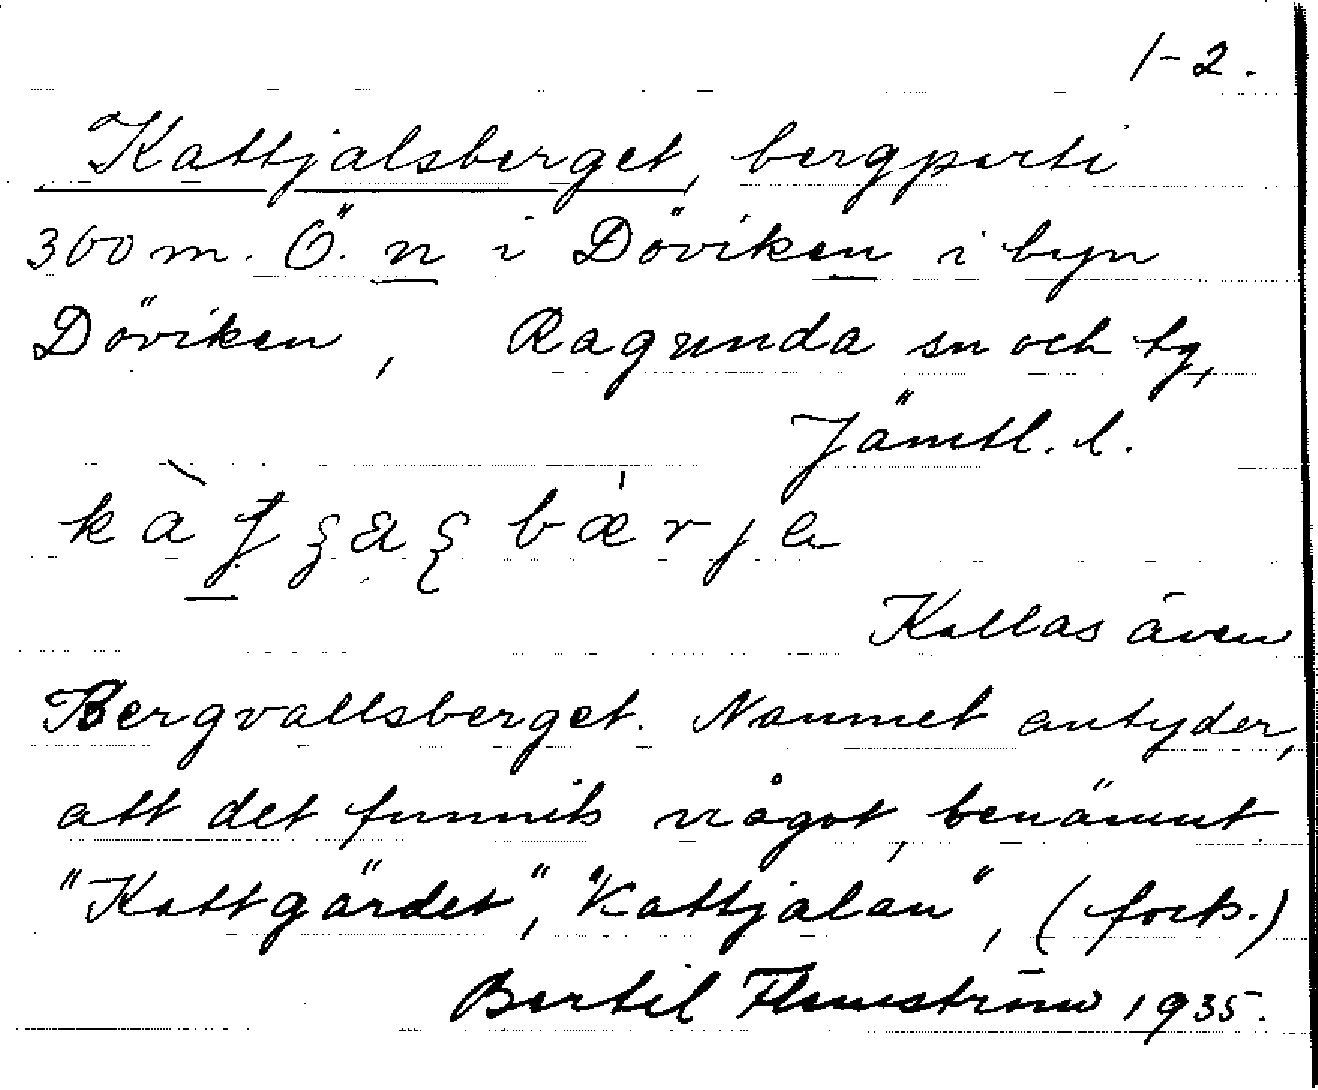 1-2.
Kattjalsberget, bergparti
300 m. Ö. n i Döviken i byn
Döviken, Ragunda sn och tg,
Jämtl. l.
Kallas även
Bergvallsberget. Namnet antyder,
att det funnits något, benämnt
"Kattgärdet", "Kattjalan", (forts.)
Bertil Flemström 1935.